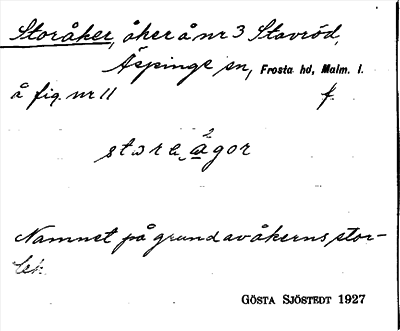 Storåker, åker å nr 3 Stavröd,
Äspinge sn, Frosta hd, Malm. l.
å fig. nr 11 f.
Namnet på grund av åkerns stor-
lek.
GÖSTA SJÖSTEDT 1927